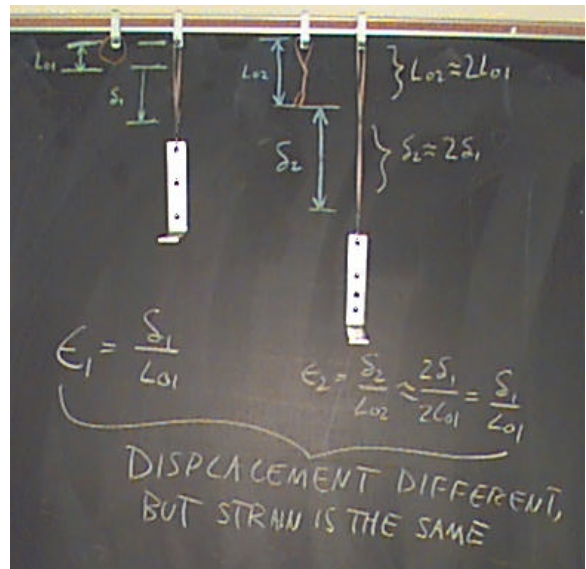 L01
δ1
L02
L02 ≈ 2L01
δ2
δ2 ≈ 2δ1
ϵ1 = δ1/L01
ϵ2 = δ2/L02 ≈ 2δ1/2L01 = δ1/L01
DISPLACEMENT DIFFERENT,
BUT STRAIN IS THE SAME